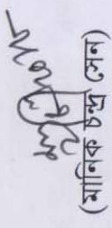 (মানিক চন্দ্র সেন)